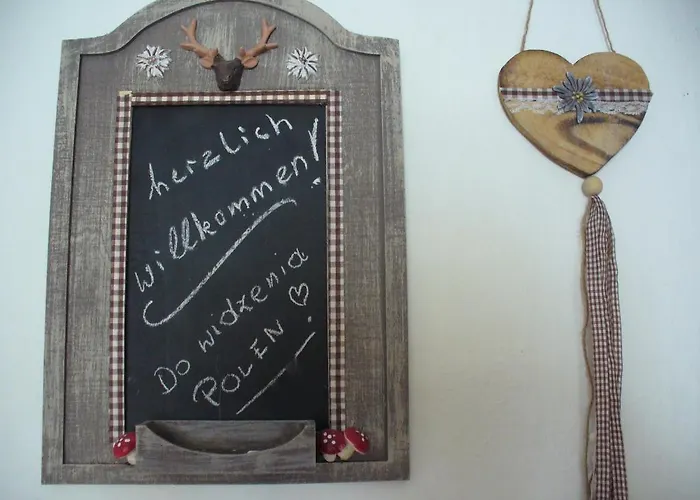 herzlich
willkommen!
Do widzenia
POLEN!